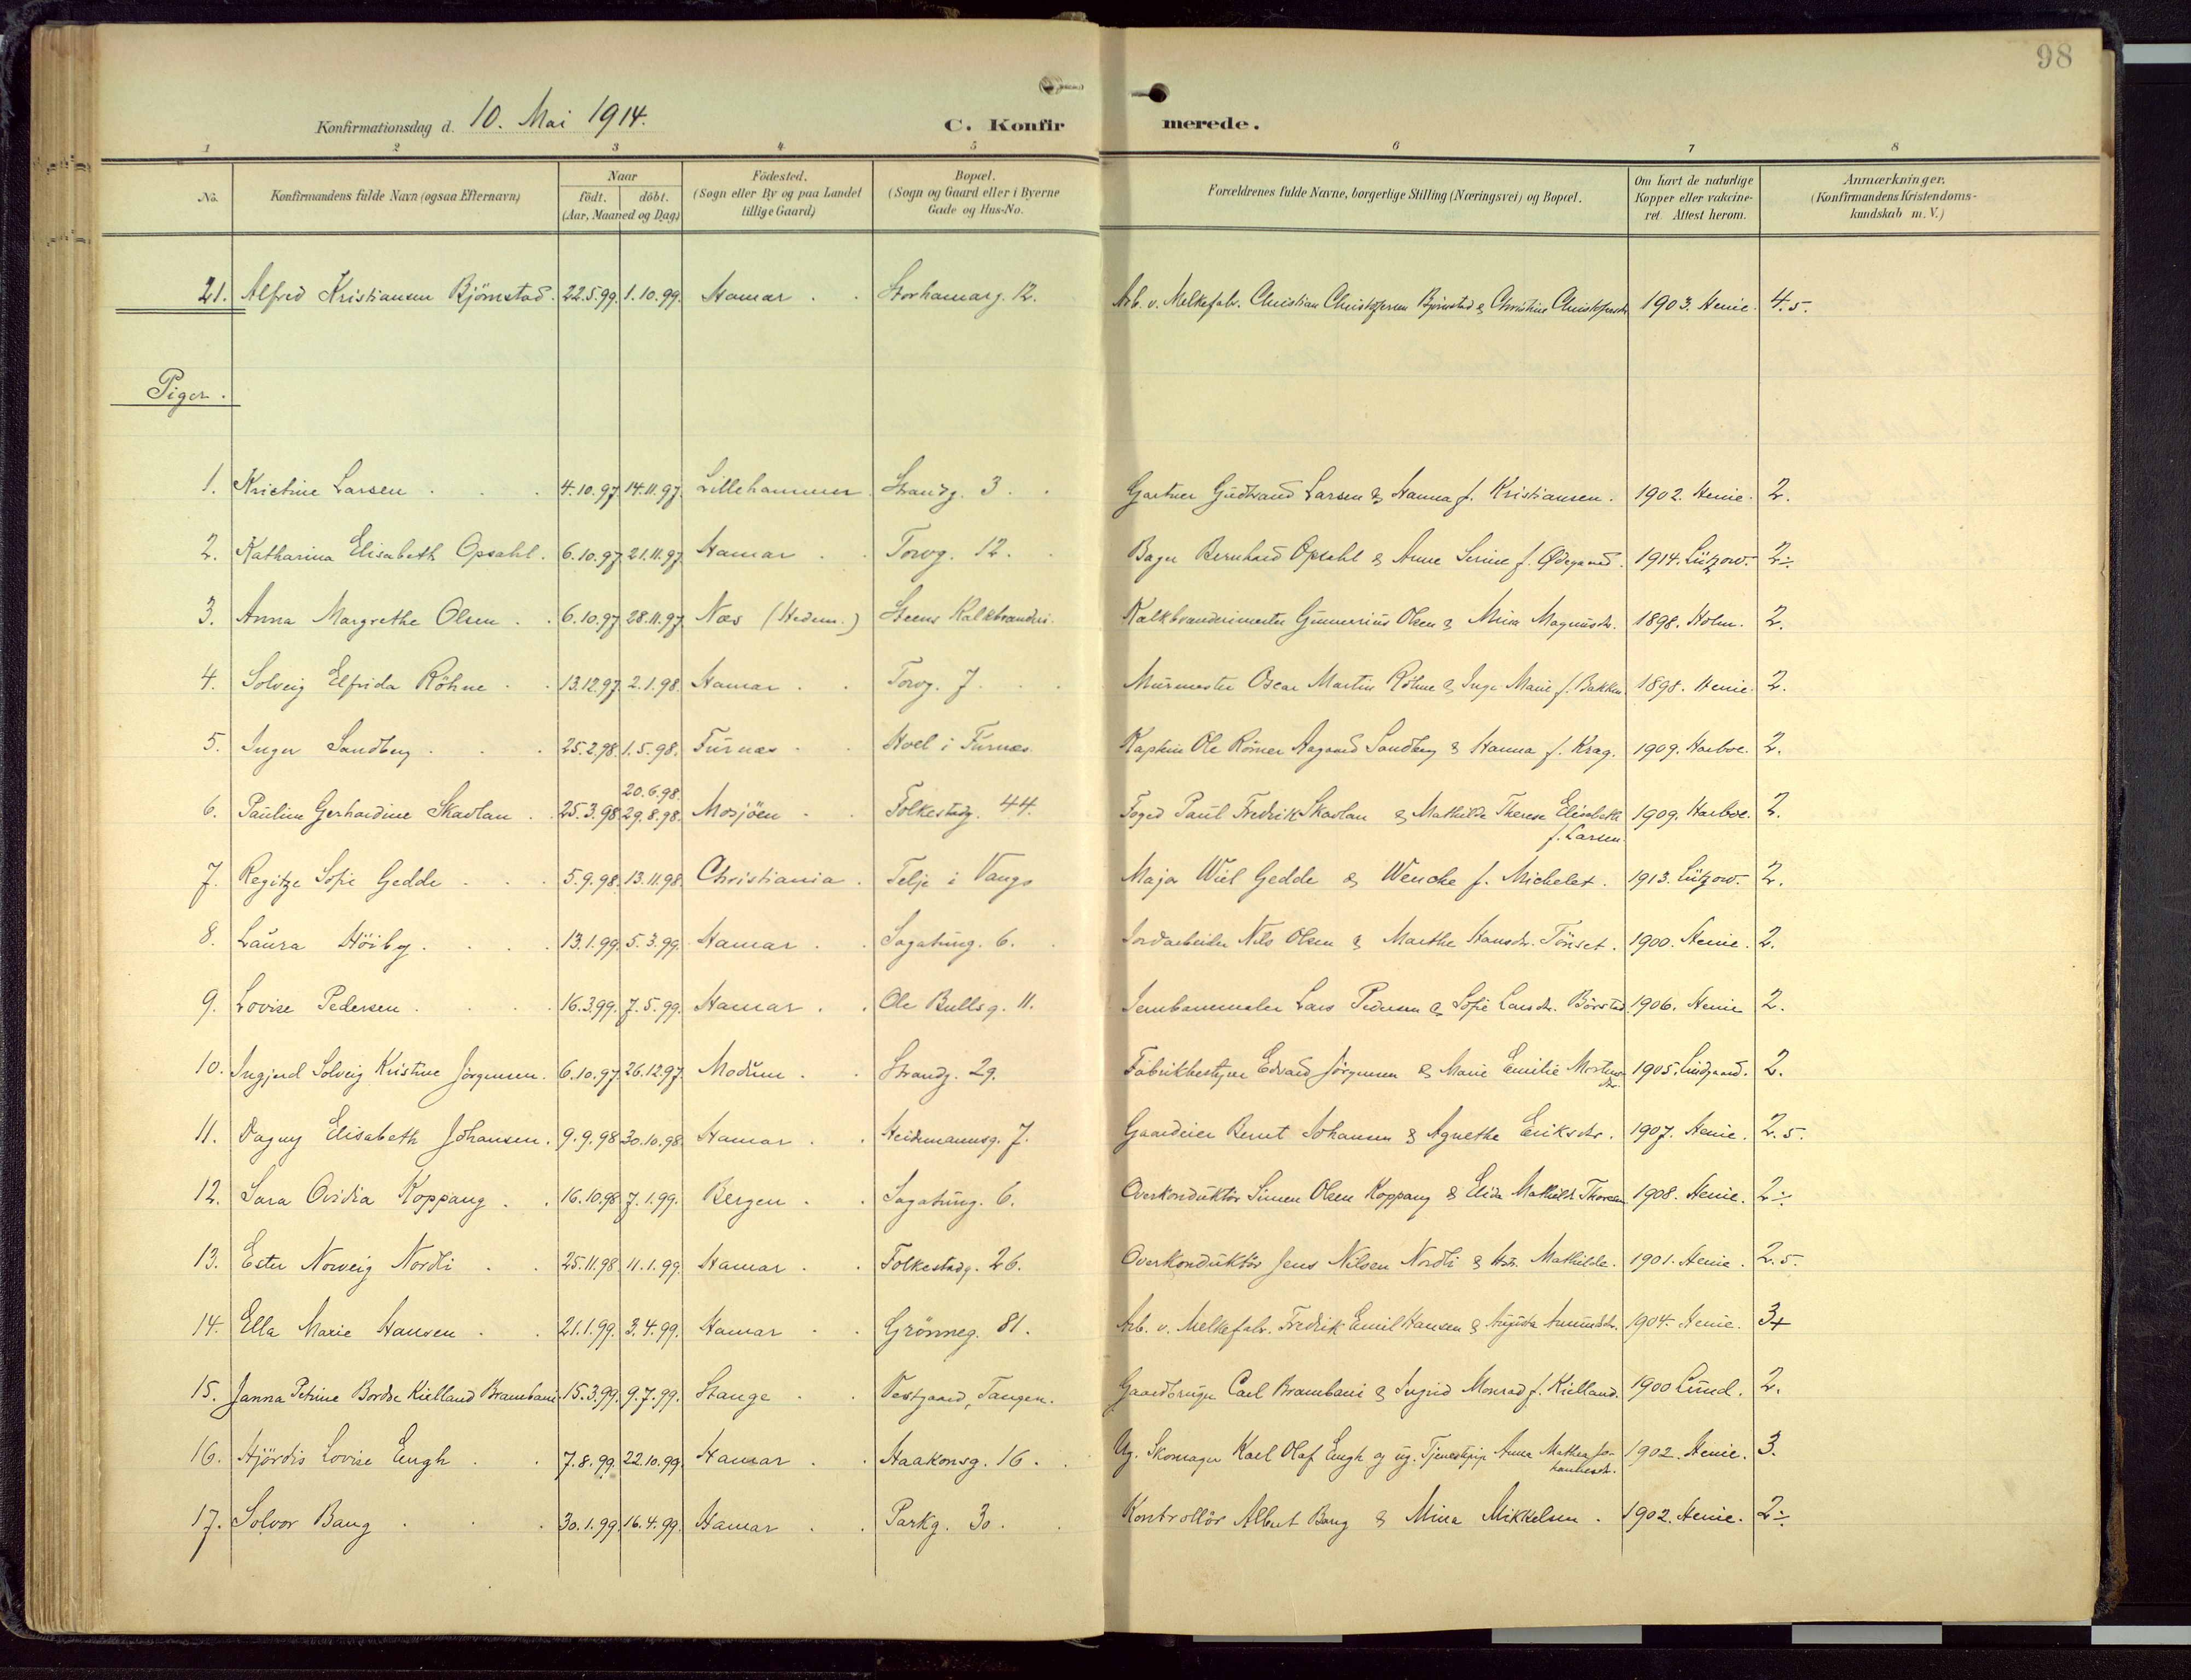 98
Konfirmationsdag d. 10. Mai 1914. C. Konfirmerede.
1 2 3 4 5 6 7 8
No. Konfirmandens fulde Navn (ogsaa Efternavn) Naar födt. döbt. (Aar, Maaned og Dag) Födested. (Sogn eller By og paa Landet tillige Gaard) Bopæl. (Sogn og Gaard eller i Byerne Gade og Hus-No. Forældrenes fulde Navne, borgerlige Stilling (Næringsvei) og Bopæl. Om havt de naturlige Kopper eller vakcineret. Attest herom. Anmærkninger. (Konfirmandens Kristendomskundskab m. V.)
21. Alfred Kristiansen Björnstad. 22.5.99. 1.10.99. Hamar . . Storhamarg. 12. Arb. v. Melkefabr. Christian Christophersen Björnstad & Christine Christophersdr. 1903. Henie. 4.5.
Piger.
1. Kristine Larsen . . . 4.10.97. 14.11.97. Lillehammer. Strandg. 3. . Gartner Gudbrand Larsen & Hanna f. Kristiansen. 1902. Henie. 2.
2. Katharina Elisabeth Opsahl. 6.10.97. 21.11.97. Hamar . . Torvg. 12. . Bager Bernhard Opsahl & Anne Serine f. Ødegaard. 1914. Lützow. 2÷
3. Anna Margrethe Olsen . . 6.10.97. 28.11.97. Nes (Hedem.) Steens Kalkbrænderi. Kalkbrænderimester Gunnerius Olsen & Mina Magnusdr. 1898. Holm. 2.
4. Solveig Elfrida Röhne . . 13.12.97. 2.1.98. Hamar . . Torvg. 7 . . Murmester Oscar Martin Röhne & Inga Marie f. Bakken. 1898. Henie. 2.
5. Inger Sandberg . . . 25.2.98. 1.5.98. Furnæs . . Hoel i Furnæs. Kaptein Ole Römer Aagaard Sandberg & Hanna f. Krag. 1909. Harboe. 2.
6. Pauline Gerhardine Skavlan . . 25.3.98. 20.6.98. 29.8.98. Mosjöen . . Folkestadg. 44. Foged Paul Fredrik Skavlan & Mathilde Therese Elisabeth f. Larsen. 1909. Harboe. 2.
7. Regitze Sofie Gedde . . . 5.9.98. 13.11.98. Christiania . Telje i Vangs Major Wiel Gedde & Wencke f. Michelet. 1913. Lützow. 2.
8. Laura Höiby. . . . 13.1.99. 5.3.99. Hamar . . Sagatung. 6. . Jordarbeider Nils Olsen & Marthe Hansdr. Tönset. 1900. Henie. 2.
9. Lovise Pedersen . . . . 16.3.99. 7.5.99. Hamar . . Ole Bullsg. 11. Jernbanemaler Lars Pedersen & Sofie Larsdr. Börstad. 1906. Henie 2.
10. Ingjerd Solveig Kristine Jörgensen. 6.10.97. 26.12.97. Modum . . Strandg. 29. Fabrikbestyrer Edvard Jörgensen & Marie Emilie Mortensdr. 1905. Lindgaard. 2.
11. Dagny Elisabeth Johansen. 9.9.98. 30.10.98. Hamar . . Heidmannsg. 7. Gaardeier Bernt Johansen & Agnethe Eriksdr. 1907. Henie. 2.5.
12. Sara Ovidia Koppang . . 16.10.98. 7.1.99. Bergen . . Sagatung. 6. Overkonduktör Simen Olsen Koppang & Elida Mathilde Thoresen 1908. Henie. 2÷
13. Ester Norveig Nordli . . 25.11.98. 11.1.99. Hamar . . Folkestadg. 26. Overkonduktör Jens Nilsen Nordli & Hstr. Mathilde. 1901. Henie. 2.5.
14. Ella Marie Hansen . . 21.1.99. 3.4.99. Hamar . . Grönneg. 81. Arb. v. Melkefabr. Fredrik Emil Hansen & Augusta Amundsdr. 1904. Henie. 3+
15. Janna Petrine Bordse Kielland Brambani. 15.3.99. 9.7.99. Stange . . Vestgaard, Tangen. Gaardbruger Carl Brambani & Ingrid Monrad f. Kielland. 1900 Lund. 2.
16. Hjördis Lovise Engh . . 7.8.99. 22.10.99. Hamar . . Haakonsg. 16. . Ug. Skomager Karl Olaf Engh og ug. Tjenestepige Anna Mathea Johannesdr. 1902. Henie. 3.
17. Solvor Bang . . . 30.1.99. 16.4.99. Hamar . . Parkg. 30. . Kontrollör Albert Bang & Mina Mikkelsen . 1902. Henie. 2÷